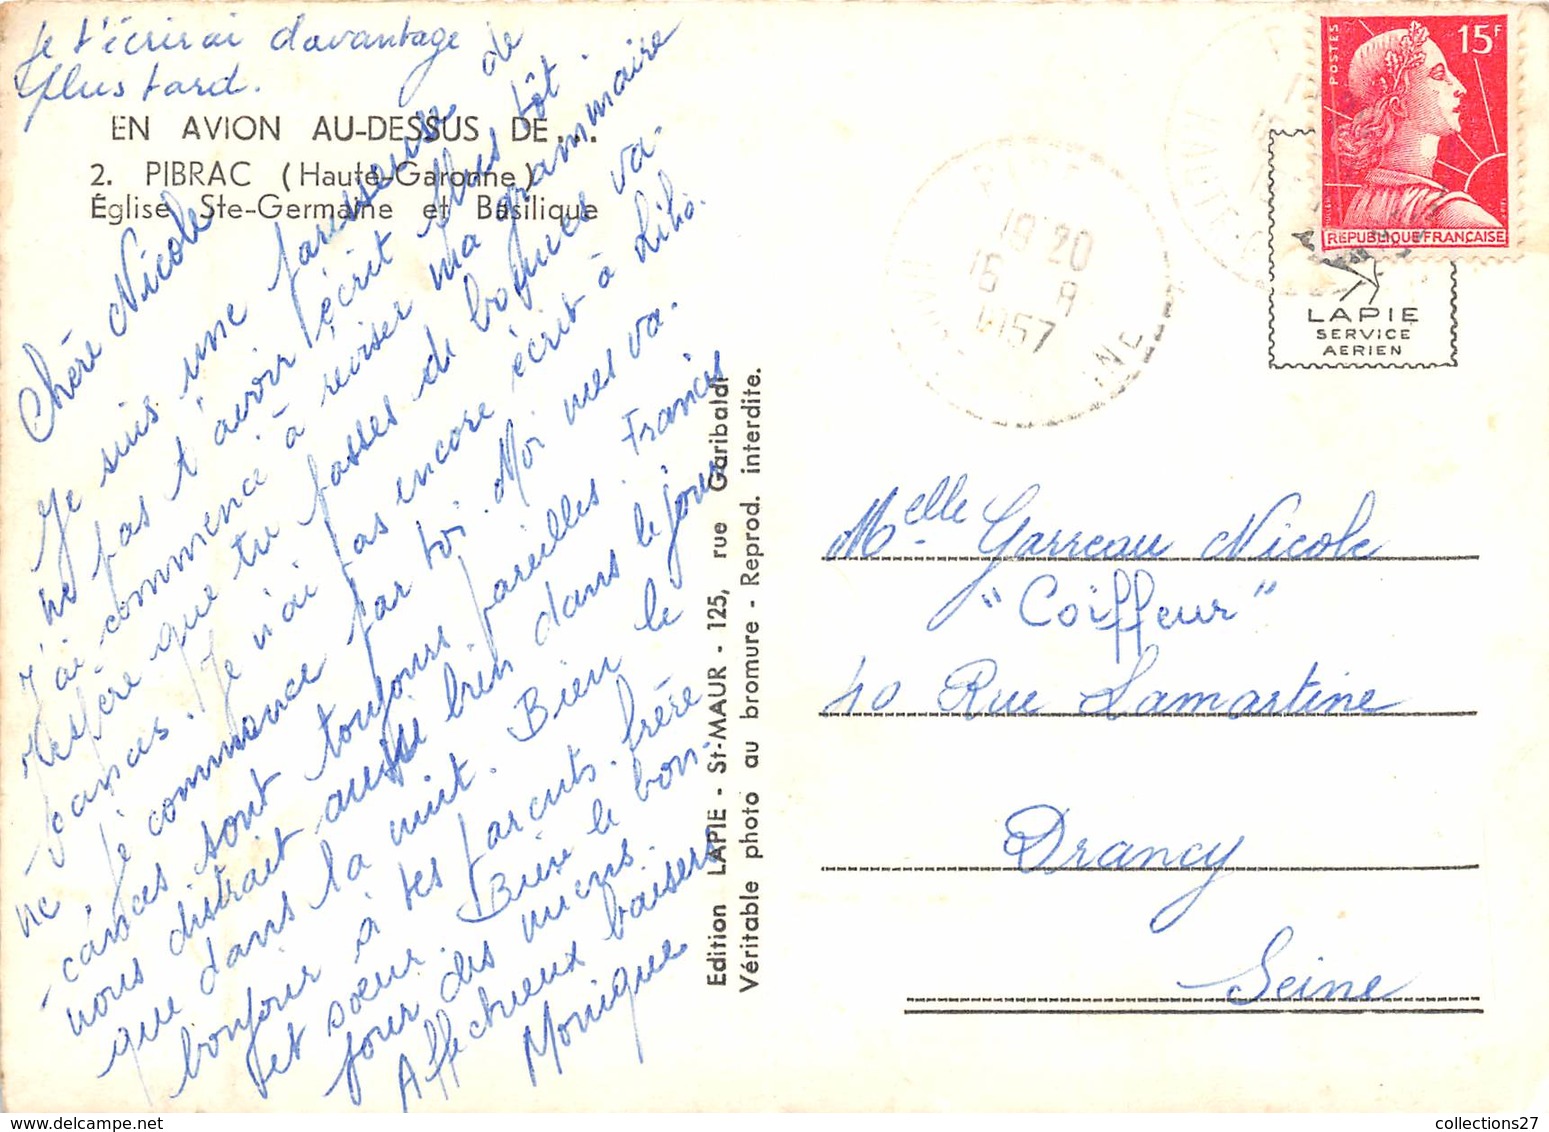 Je t'écrirai davantage
plus tard.
EN AVION AU-DESSUS DE...
2. PIBRAC (Haute-Garonne)
Église Ste-Germaine et Basilique
Chère Nicole
Je suis une paresseuse de
ne pas t'avoir écrit plus tôt.
J'ai commencé à réviser ma grammaire
J'espère que tu passes de bonnes va-
-cances. Je n'ai pas encore écrit à Lilo.
je commence par toi. Moi mes va-
-cances sont toujours pareilles. Francis
nous distrait aussi bien dans le jour
que dans la nuit. Bien le
bonjour à tes parents. frère
et soeur. Bien le bon-
jour des miens.
Affectueux baisers
Monique
Edition LAPIE - St-MAUR - 125, rue Garibaldi
Véritable photo au bromure - Reprod. interdite.
POSTES
15F
REPUBLIQUE FRANÇAISE
LAPIE
SERVICE
AERIEN
19 20
15 8
1957
Melle Garreau Nicole
"Coiffeur"
40 Rue Lamartine
Drancy
Seine
collections27